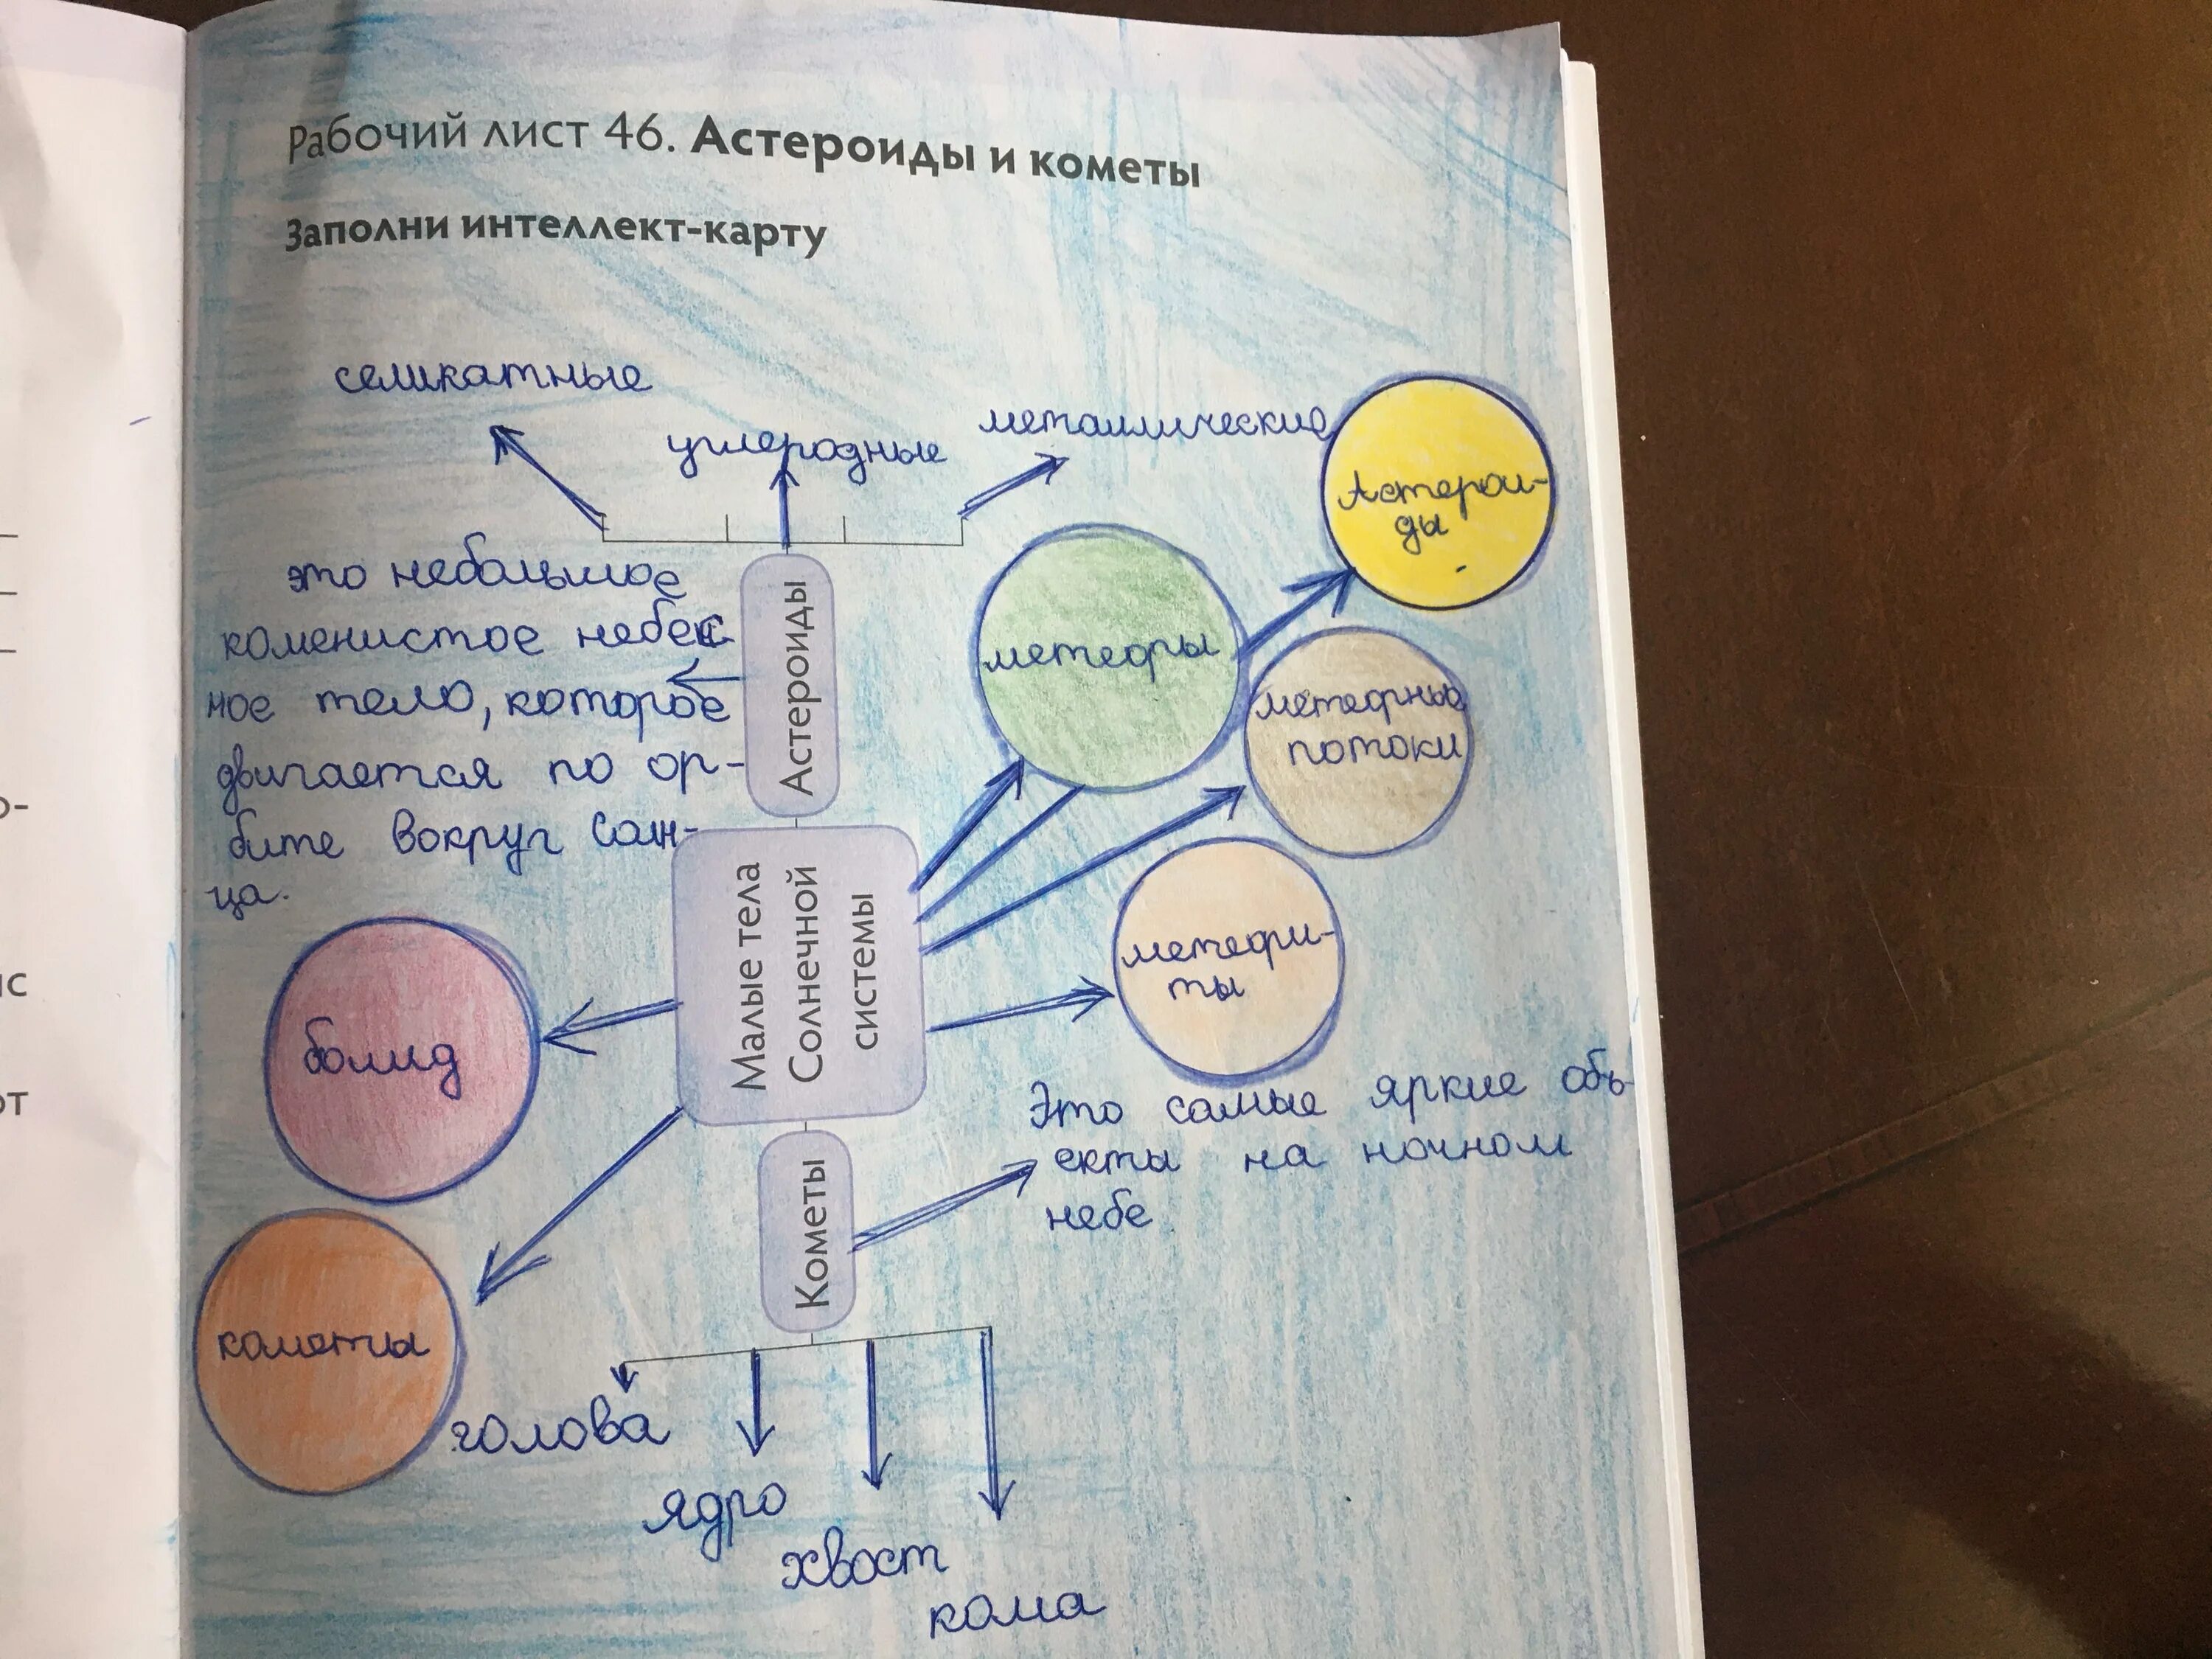 Рабочий лист 46. Астероиды и кометы
Заполни интеллект-карту
селикатные
углеродные
металлические
Астерои-
ды
это небольшое
коменистое небес
ное тело, которое
двигается по ор-
бите вокруг Солн-
ца.
Астероиды
метеоры
метеорные
потоки
метеори-
ты
Малые тела
Солнечной
системы
болид
Это самые яркие объ-
екты на ночном
небе.
Кометы
кометы
голова
ядро
хвост
кома
о-
ис
от